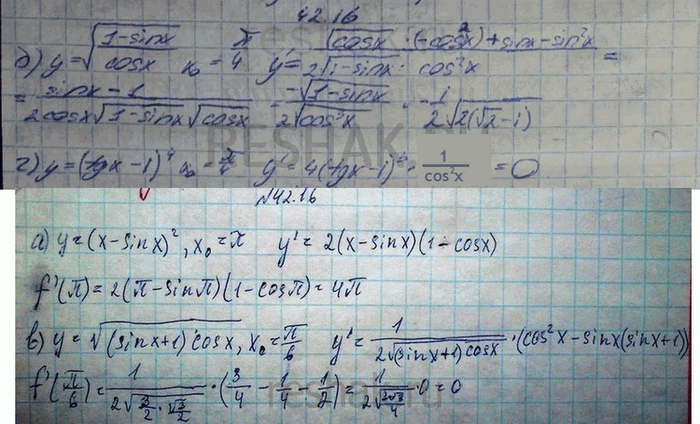 42.16
б) y=√((1-sinx)/cosx) x₀=π/4 y'=(√cosx · (-cos²x)+sinx-sin²x)/(2√(1-sinx) · cos²x) =
= (sinx-1)/(2cosx√(1-sinx)√cosx) = (-√(1-sinx))/(2√(cos³x)) = -1/2 √(2(√2-1))
г) y=(tgx-1)⁴ x₀=π/4 y'=4(tgx-1)³ · 1/cos²x = 0
№42.16
а) y=(x-sinx)², x₀=π y'=2(x-sinx)(1-cosx)
f'(π)=2(π-sinπ)(1-cosπ)=4π
в) y=√((sinx+1)cosx), x₀=π/6 y'=1/(2√((sinx+1)cosx)) · (cos²x-sinx(sinx+1))
f'(π/6)=1/(2√(3/2 · √3/2)) · (3/4-1/4-1/2)=1/(2√(3√3/4)) · 0=0